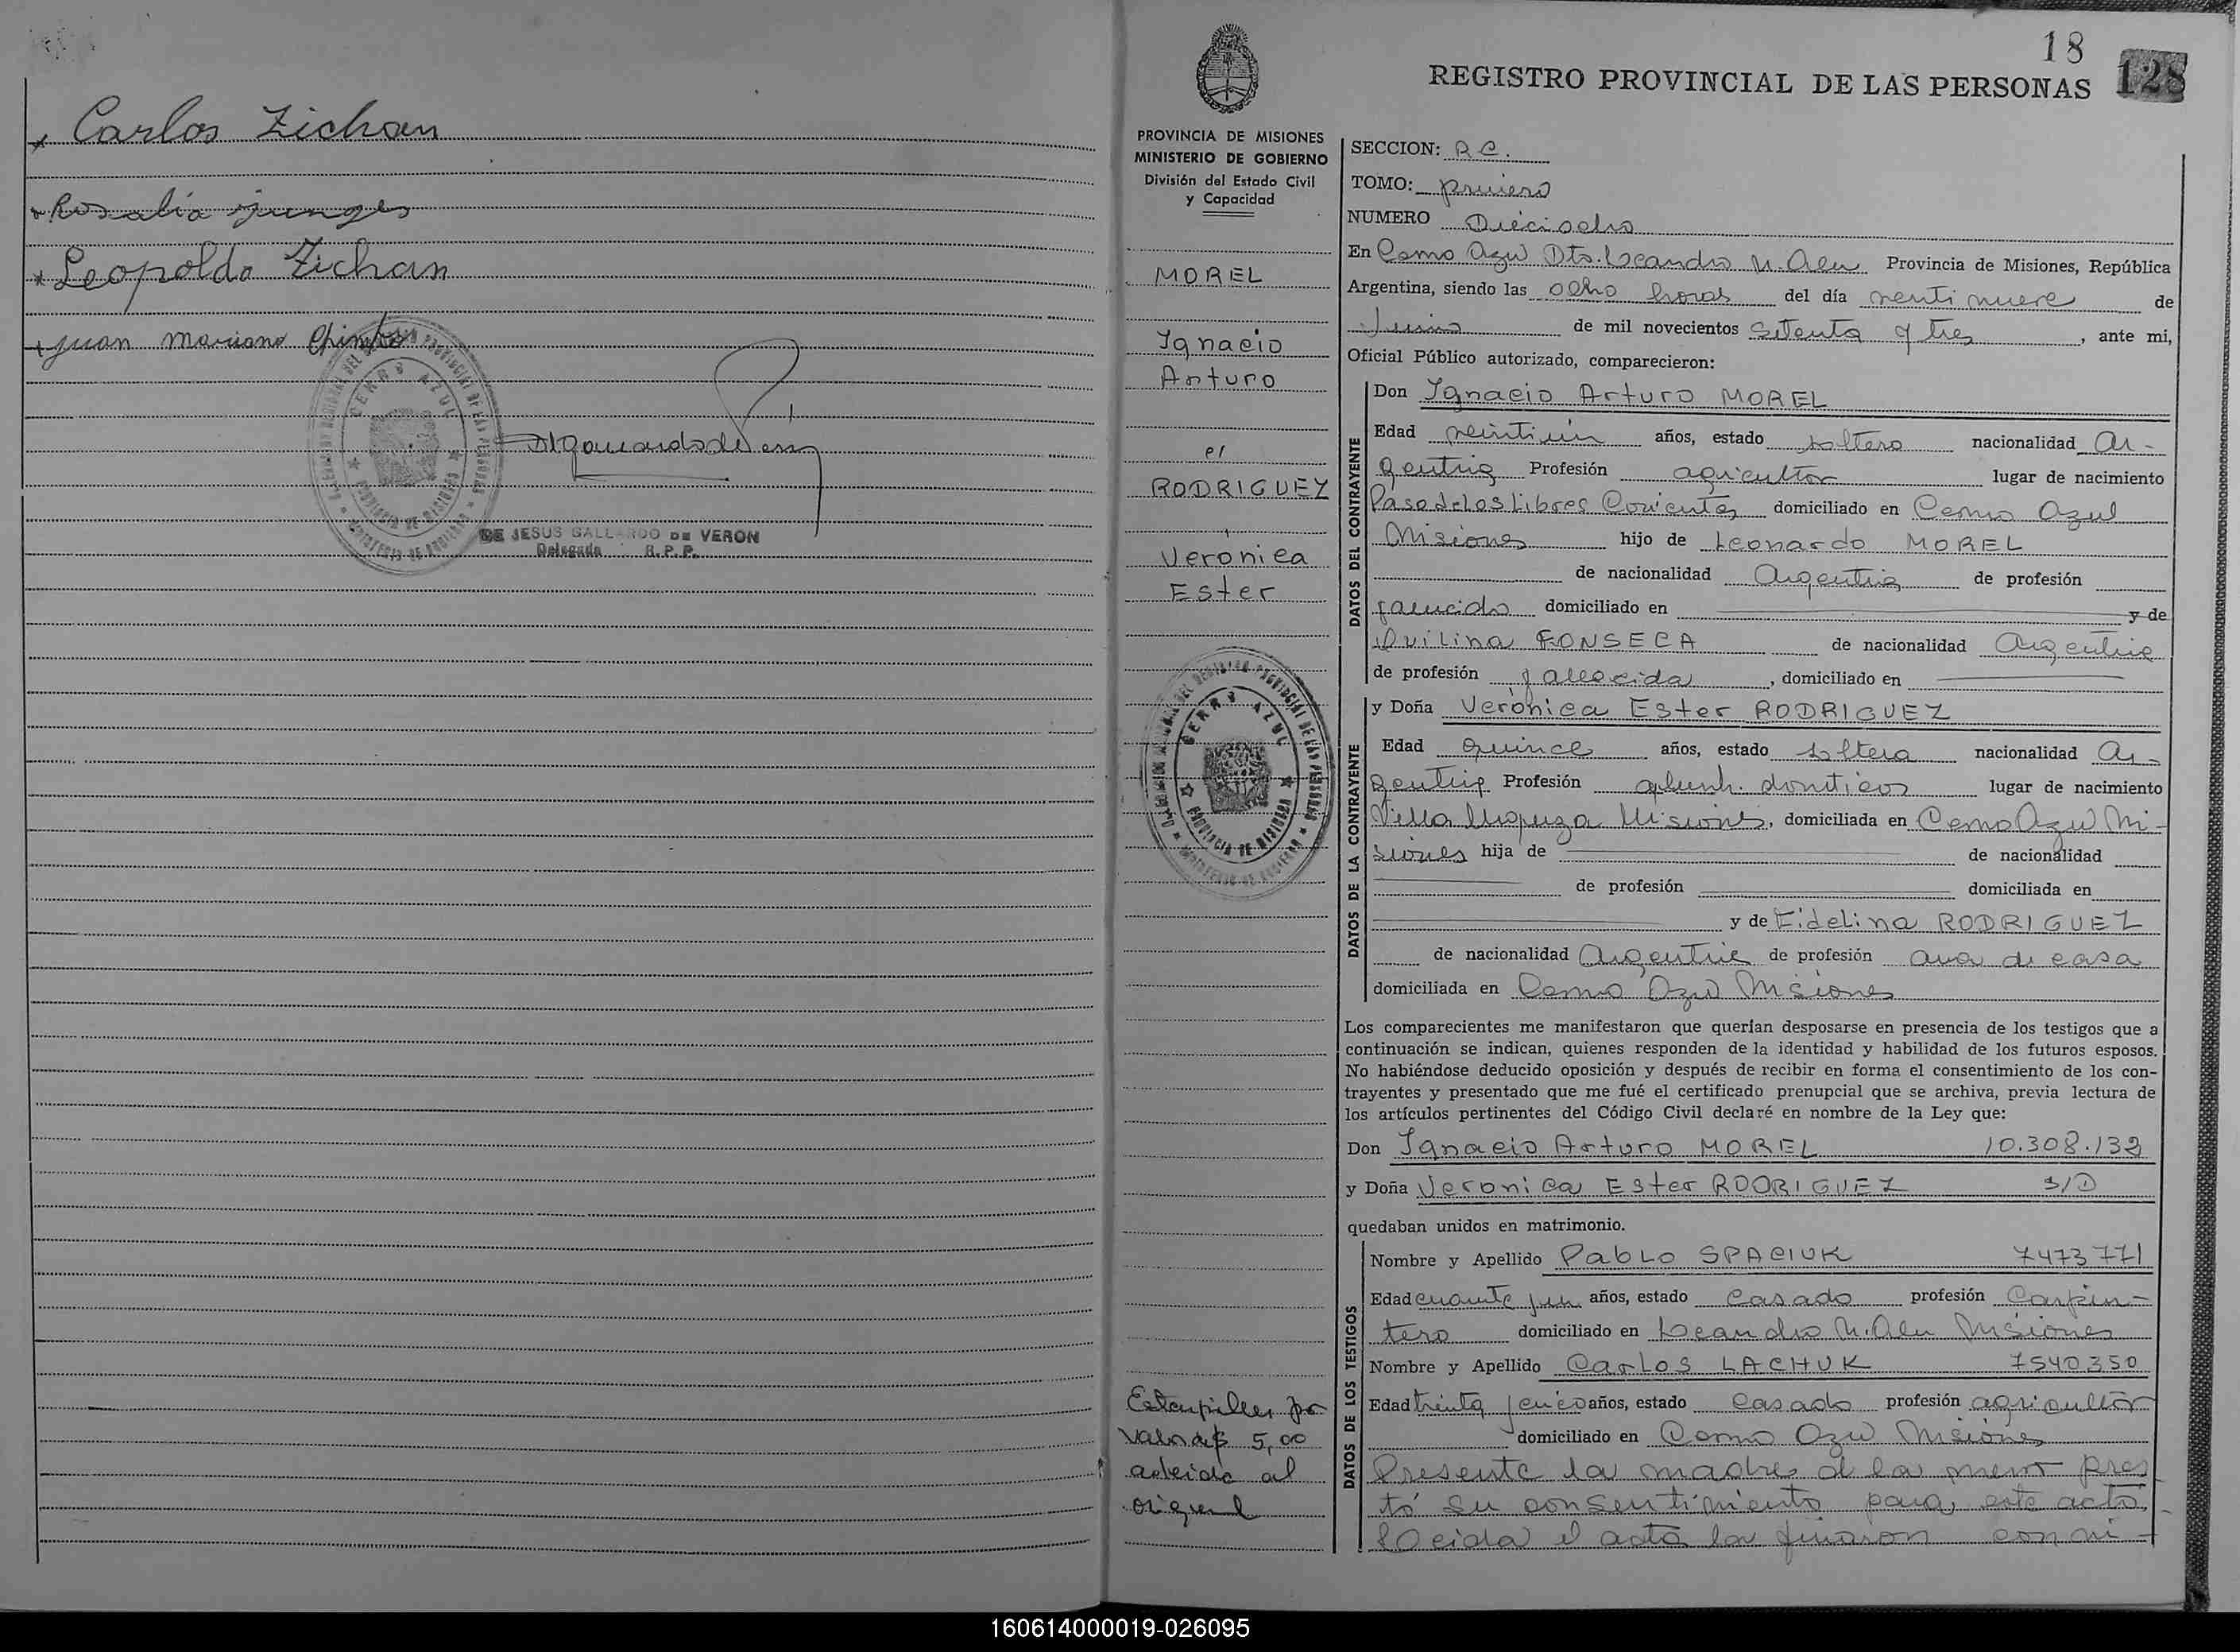 Carlos Zichan
Rosalia Junges
Leopoldo Zichan
Juan Mariano
CERRO AZUL
PROVINCIA DE MISIONES
DE JESUS GALLARDO DE VERON
Delegada R. P. P.
18
128
REGISTRO PROVINCIAL DE LAS PERSONAS
PROVINCIA DE MISIONES
MINISTERIO DE GOBIERNO
División del Estado Civil
y Capacidad
MOREL
Ignacio
Arturo
c/
RODRIGUEZ
Veronica
Ester
CERRO AZUL
PROVINCIA DE MISIONES
Estampillas por
valor de $ 5,00
adherido al
original
SECCION: R C.
TOMO: primero
NUMERO Dieciocho
En Cerro Azul Dto. Leandro N. Alem Provincia de Misiones, República
Argentina, siendo las ocho horas del día veintinueve de
Junio de mil novecientos setenta y tres, ante mi,
Oficial Público autorizado, comparecieron:
DATOS DEL CONTRAYENTE
Don Ignacio Arturo MOREL
Edad veintiún años, estado soltero nacionalidad Ar-
gentina Profesión agricultor lugar de nacimiento
Paso de los Libres Corrientes domiciliado en Cerro Azul
Misiones hijo de Leonardo MOREL
de nacionalidad Argentina de profesión
fallecido domiciliado en y de
FONSECA de nacionalidad Argentina
de profesión fallecida, domiciliado en
DATOS DE LA CONTRAYENTE
y Doña Verónica Ester RODRIGUEZ
Edad quince años, estado soltera nacionalidad Ar-
gentina Profesión lugar de nacimiento
Villa Misiones, domiciliada en Cerro Azul Mi-
siones hija de de nacionalidad
de profesión domiciliada en
y de Fidelina RODRIGUEZ
de nacionalidad Argentina de profesión ama de casa
domiciliada en Cerro Azul Misiones
Los comparecientes me manifestaron que querían desposarse en presencia de los testigos que a
continuación se indican, quienes responden de la identidad y habilidad de los futuros esposos.
No habiéndose deducido oposición y después de recibir en forma el consentimiento de los con-
trayentes y presentado que me fué el certificado prenupcial que se archiva, previa lectura de
los artículos pertinentes del Código Civil declaré en nombre de la Ley que:
Don Ignacio Arturo MOREL 10.308.132
y Doña Veronica Ester RODRIGUEZ S/D
quedaban unidos en matrimonio.
DATOS DE LOS TESTIGOS
Nombre y Apellido Pablo SPACIUK 7473771
Edad cuarenta y un años, estado casado profesión Carpin-
tero domiciliado en Leandro N. Alem Misiones
Nombre y Apellido Carlos LACHUK 7540350
Edad treinta y cinco años, estado casado profesión agricultor
domiciliado en Cerro Azul Misiones
Presente la madre de la menor pres
tó su consentimiento para este acto,
Leida el acta la firmaron conmi-
160614000019-026095